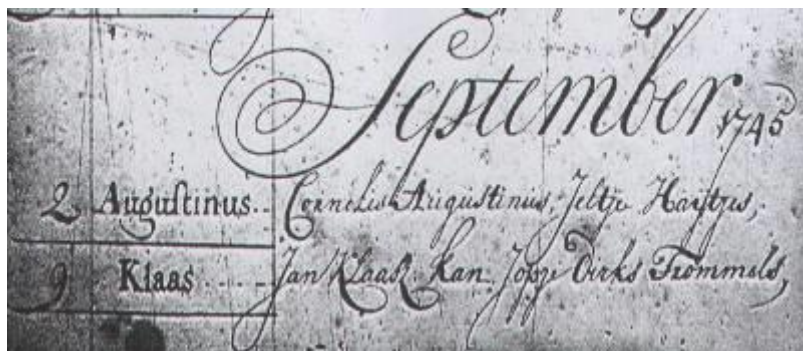 September 1745
2 Augustinus.. Cornelis Augustinus, Jeltje Haytjes,
9 Klaas .... Jan Klaasz. Kan. Jopje Dirks Trommels,